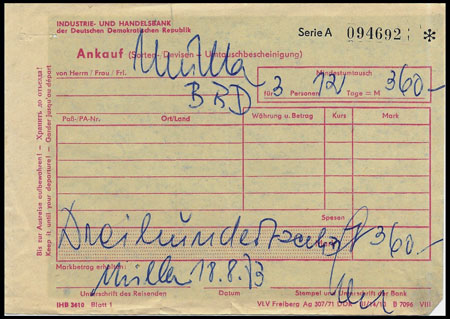 INDUSTRIE- UND HANDELSBANK
der Deutschen Demokratischen Republik
Serie A 094692 *
Ankauf (Sorten-, Devisen – Umtauschbescheinigung)
Müller
von Herrn/Frau/Frl.
BRD
Mindestumtausch
für 3 Personen 12 Tage = M 360,-
Paß-/PA-Nr. Ort/Land Währung u. Betrag Kurs Mark
Spesen
Dreihundertsechzig 360,-
Markbetrag erhalten:
Müller 18.8.73
Unterschrift des Reisenden Datum Stempel und Unterschrift der Bank
IHB 3610 Blatt 1 VLV Freiberg Ag 307/71 DDR B 7096 VIII
Bis zur Ausreise aufbewahren! – Хранить до отъезда!
Keep it until your departure! – Garder jusqu'au départ